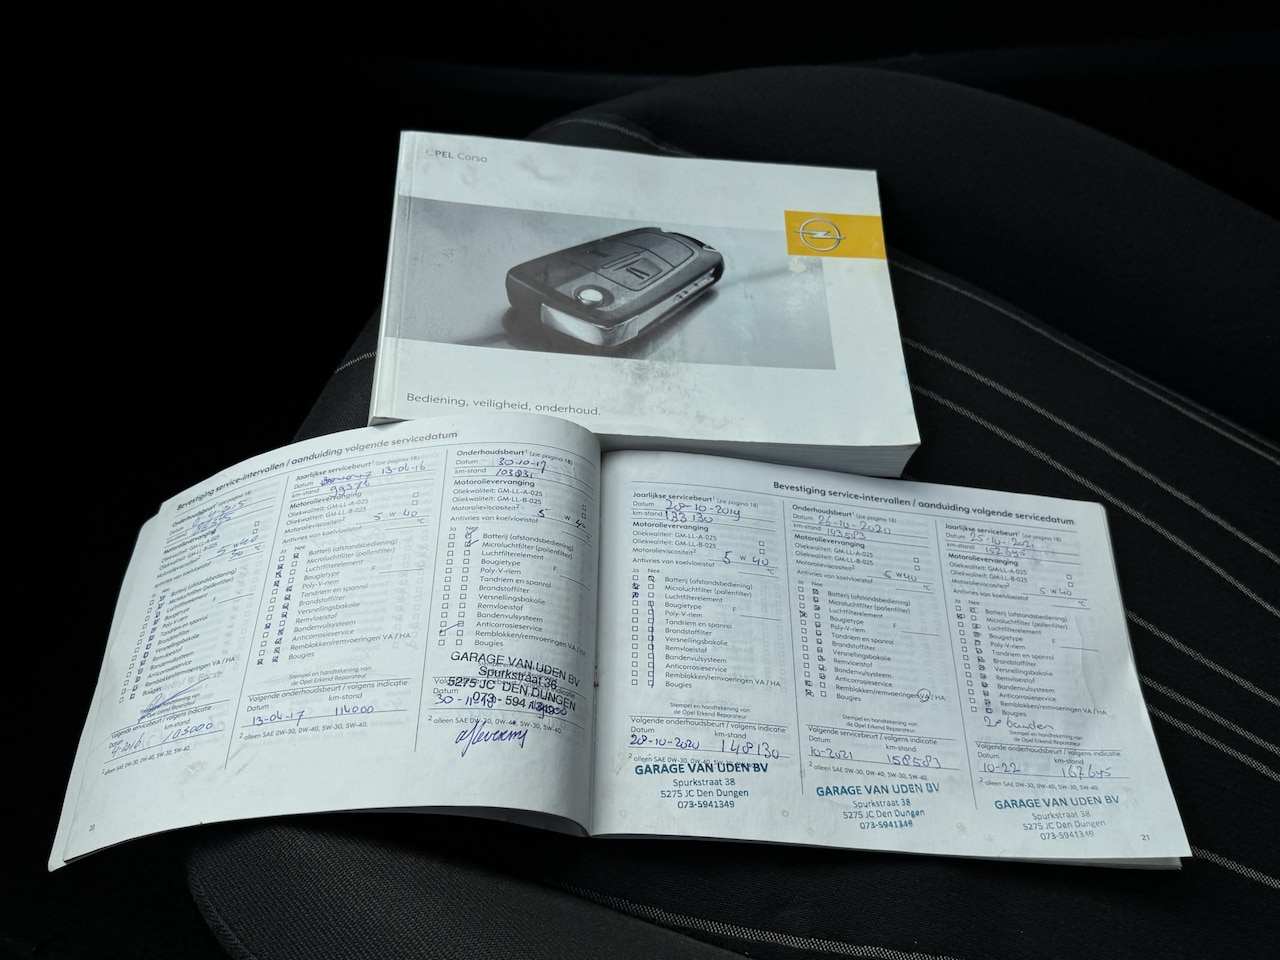 OPEL Corsa
Bediening, veiligheid, onderhoud.
Bevestiging service-intervallen / aanduiding volgende servicedatum
Onderhoudsbeurt¹ (zie pagina 18)
Datum
km-stand
Motorolievervanging
Oliekwaliteit: GM-LL-A-025
Oliekwaliteit: GM-LL-B-025
Motorolieviscositeit² 5 w 40
Antivries van koelvloeistof 30 °C
Ja Nee
Batterij (afstandsbediening)
Microluchtfilter (pollenfilter)
Luchtfilterelement
Bougietype F
Poly-V-riem
Tandriem en spanrol
Brandstoffilter
Versnellingsbakolie
Remvloeistof
Bandenvulsysteem
Anticorrosieservice
Remblokken/remvoeringen VA / HA
Bougies
Stempel en handtekening van
de Opel Erkend Reparateur
Volgende servicebeurt / volgens indicatie
Datum km-stand
105000
² alleen SAE 0W-30, 0W-40, 5W-30, 5W-40.
20
Jaarlijkse servicebeurt¹ (zie pagina 18)
Datum 13-04-16
km-stand 99376
Motorolievervanging
Oliekwaliteit: GM-LL-A-025
Oliekwaliteit: GM-LL-B-025
Motorolieviscositeit² 5 w 40
Antivries van koelvloeistof °C
Ja Nee
Batterij (afstandsbediening)
Microluchtfilter (pollenfilter)
Luchtfilterelement
Bougietype F
Poly-V-riem
Tandriem en spanrol
Brandstoffilter
Versnellingsbakolie
Remvloeistof
Bandenvulsysteem
Anticorrosieservice
Remblokken/remvoeringen VA / HA
Bougies
Stempel en handtekening van
de Opel Erkend Reparateur
Volgende onderhoudsbeurt / volgens indicatie
Datum km-stand
13-04-17 114000
² alleen SAE 0W-30, 0W-40, 5W-30, 5W-40.
Onderhoudsbeurt¹ (zie pagina 18)
Datum 30-10-17
km-stand 103831
Motorolievervanging
Oliekwaliteit: GM-LL-A-025
Oliekwaliteit: GM-LL-B-025
Motorolieviscositeit² 5 w 40
Antivries van koelvloeistof °C
Ja Nee
Batterij (afstandsbediening)
Microluchtfilter (pollenfilter)
Luchtfilterelement
Bougietype F
Poly-V-riem
Tandriem en spanrol
Brandstoffilter
Versnellingsbakolie
Remvloeistof
Bandenvulsysteem
Anticorrosieservice
Remblokken/remvoeringen VA / HA
Bougies
GARAGE VAN UDEN BV
Spurkstraat 36
5275 JC DEN DUNGEN
073-5941349
Datum
² alleen SAE 0W-30, 0W-40, 5W-30, 5W-40.
Bevestiging service-intervallen / aanduiding volgende servicedatum
Jaarlijkse servicebeurt¹ (zie pagina 18)
Datum 28-10-2019
km-stand 133130
Motorolievervanging
Oliekwaliteit: GM-LL-A-025
Oliekwaliteit: GM-LL-B-025
Motorolieviscositeit² 5 w 40
Antivries van koelvloeistof °C
Ja Nee
Batterij (afstandsbediening)
Microluchtfilter (pollenfilter)
Luchtfilterelement
Bougietype F
Poly-V-riem
Tandriem en spanrol
Brandstoffilter
Versnellingsbakolie
Remvloeistof
Bandenvulsysteem
Anticorrosieservice
Remblokken/remvoeringen VA / HA
Bougies
Stempel en handtekening van
de Opel Erkend Reparateur
Volgende onderhoudsbeurt / volgens indicatie
Datum km-stand
28-10-2020 148130
² alleen SAE 0W-30, 0W-40, 5W-30, 5W-40.
GARAGE VAN UDEN BV
Spurkstraat 38
5275 JC Den Dungen
073-5941349
Onderhoudsbeurt¹ (zie pagina 18)
Datum 26-10-2020
km-stand 143583
Motorolievervanging
Oliekwaliteit: GM-LL-A-025
Oliekwaliteit: GM-LL-B-025
Motorolieviscositeit² 5 w 40
Antivries van koelvloeistof °C
Ja Nee
Batterij (afstandsbediening)
Microluchtfilter (pollenfilter)
Luchtfilterelement
Bougietype F
Poly-V-riem
Tandriem en spanrol
Brandstoffilter
Versnellingsbakolie
Remvloeistof
Bandenvulsysteem
Anticorrosieservice
Remblokken/remvoeringen VA / HA
Bougies
Stempel en handtekening van
de Opel Erkend Reparateur
Volgende servicebeurt / volgens indicatie
Datum km-stand
10-2021 158583
² alleen SAE 0W-30, 0W-40, 5W-30, 5W-40.
GARAGE VAN UDEN BV
Spurkstraat 38
5275 JC Den Dungen
073-5941349
Jaarlijkse servicebeurt¹ (zie pagina 18)
Datum 25-10-2021
km-stand 152695
Motorolievervanging
Oliekwaliteit: GM-LL-A-025
Oliekwaliteit: GM-LL-B-025
Motorolieviscositeit² 5 w 40
Antivries van koelvloeistof °C
Ja Nee
Batterij (afstandsbediening)
Microluchtfilter (pollenfilter)
Luchtfilterelement
Bougietype F
Poly-V-riem
Tandriem en spanrol
Brandstoffilter
Versnellingsbakolie
Remvloeistof
Bandenvulsysteem
Anticorrosieservice
Remblokken/remvoeringen VA / HA
Bougies
2 banden
Stempel en handtekening van
de Opel Erkend Reparateur
Volgende onderhoudsbeurt / volgens indicatie
Datum km-stand
10-22 167695
² alleen SAE 0W-30, 0W-40, 5W-30, 5W-40.
GARAGE VAN UDEN BV
Spurkstraat 38
5275 JC Den Dungen
073-5941349
21